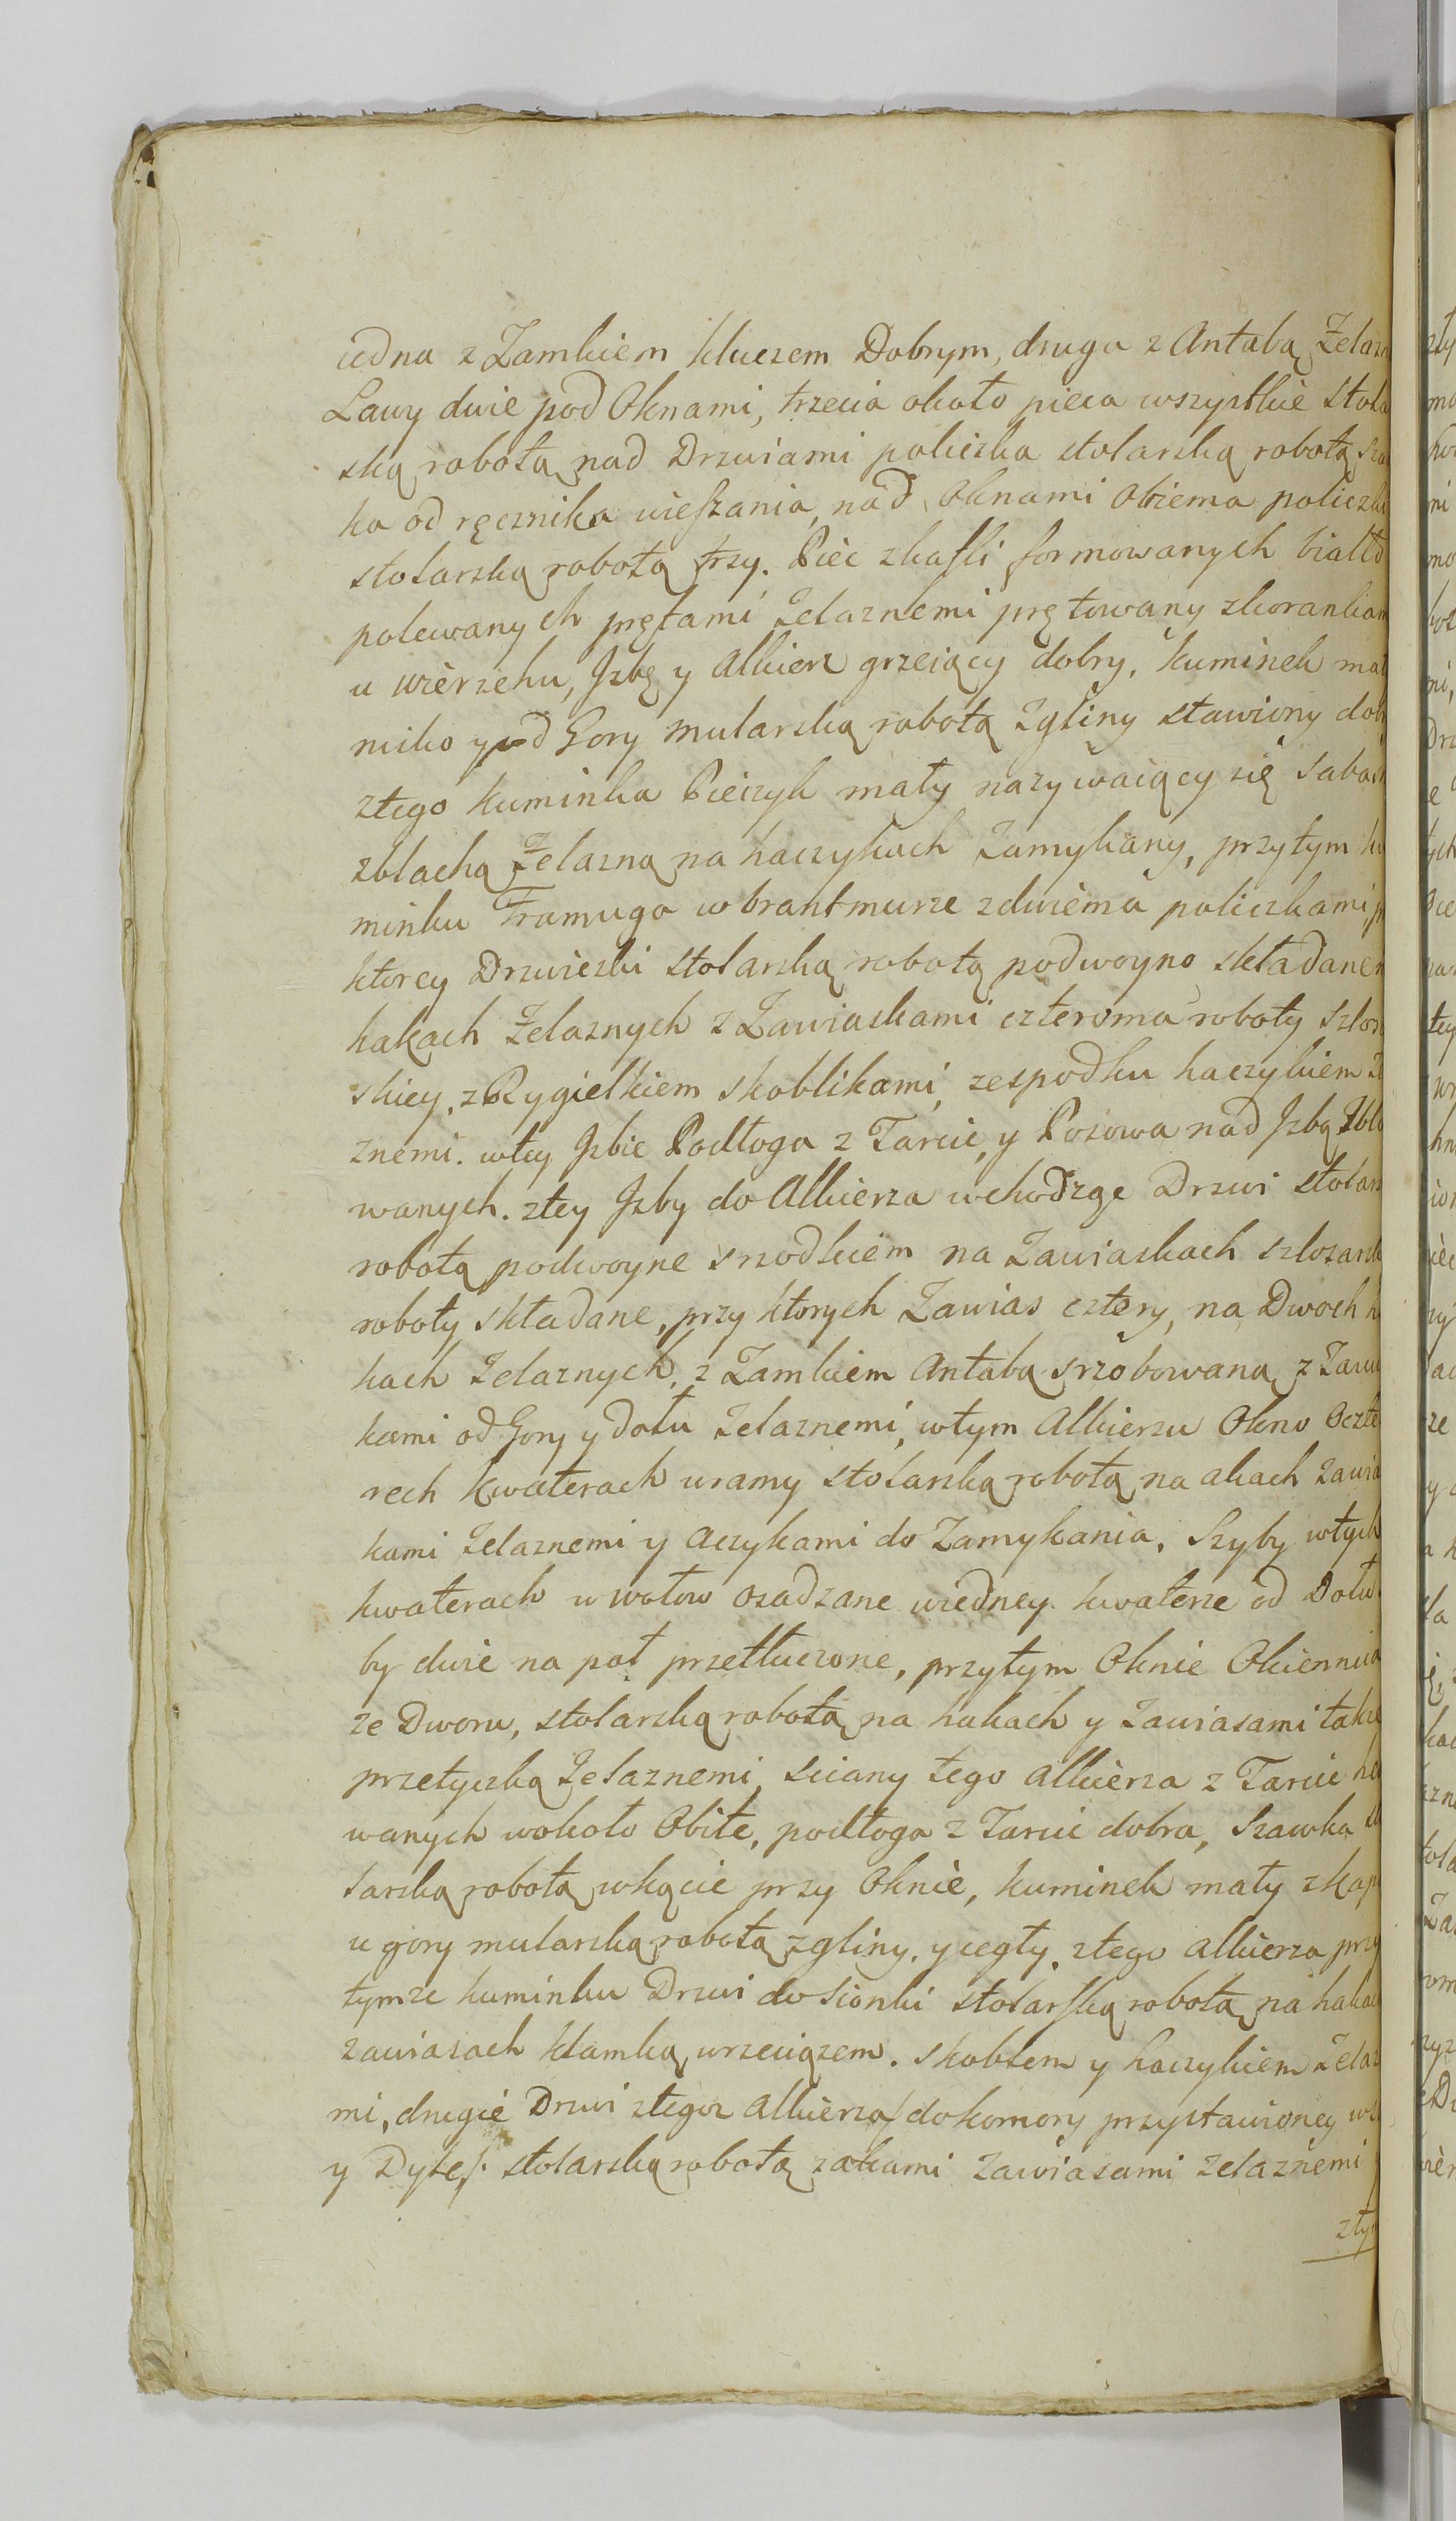 iedna z Zamkiem kluczem Dobrym, druga z Antabą Żelaz
Ławy dwie pod Oknami, trzecia około pieca wszystkie stola
ską robotą nad Drzwiami policzka stolarską robotą
ka od ręcznika wieszania, nad Oknami Obiema policzk
stolarską robotą trzy. Piec zkafli formowanych biało
polewanych prętami żelaznemi prętowany zkorankam
u wierzchu, Jzbę y Alkierz grzeiący dobry, kuminek ma
od Gory mularską robotą zgliny stawiony dob
ztego kuminka Pieczyk mały nazywaiący się Sabaś
zblachą Żelazną na haczykach Zamykany, przytym ku
minku Framuga wbrantmurze zdwiema policzkami, p
ktorey Drzwiczki stolarską robotą podwoyno składane n
hakach Żelaznych z Zawiaskami czteroma roboty szlos
skiey, z Rygielkiem skoblikami, zespodku haczykiem Ż
znemi. wtey Jzbie Podłoga z Tarcic, y Pozowa nad Jzbą
wanych. ztey Jzby do Alkierza wchodząc Drzwi stolars
robotą podwoyne srzodkiem na Zawiaskach szlosarsk
roboty składane, przy ktorych Zawias cztery, na Dwoch h
kach żelaznych, z Zamkiem Antabą srzobowaną z Zaw
kami od Gory y dołu żelaznemi, wtym Alkierzu Okno Oczte
rech kwaterach wramy stolarską robotą na akach zawia
kami żelaznemi y aczykami do Zamykania, Szyby wtych
kwaterach w wołow osadzane wiedney kwaterze od Dołu
by dwie na poł przetłuczone, przytym Oknie Okiennica
ze Dworu, stolarską robotą na hakach y Zawiasami takż
przetyczką żelaznemi, sciany tego alkierza z Tarcic he
wanych wokoło Obite, podłoga z Tarcic dobra, Szawka st
larską robotą wkącie przy Oknie, kuminek mały z kap
u gory mularską robotą zgliny, ycegły, ztego alkierza przy
tymze kuminku Drzwi do sionki stolarską robotą na haka
zawiasach klamką, wrzeciązem, skoblem y haczykiem żelaz
mi, drugie Drzwi ztegoz Alkierza / do komory przystawioney
y Dyle /: stolarską robotą zakami zawiasami żelaznemi
zty